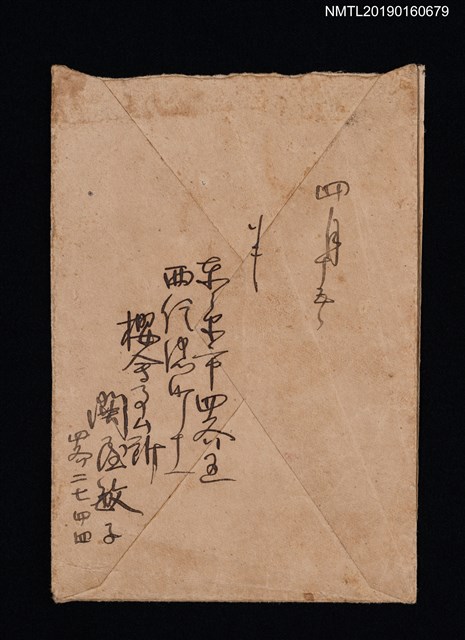 NMTL20190160679
四月十五日
東京市四谷區
西信濃町十一
櫻會事ム所
関屋敏子
四谷二七四四